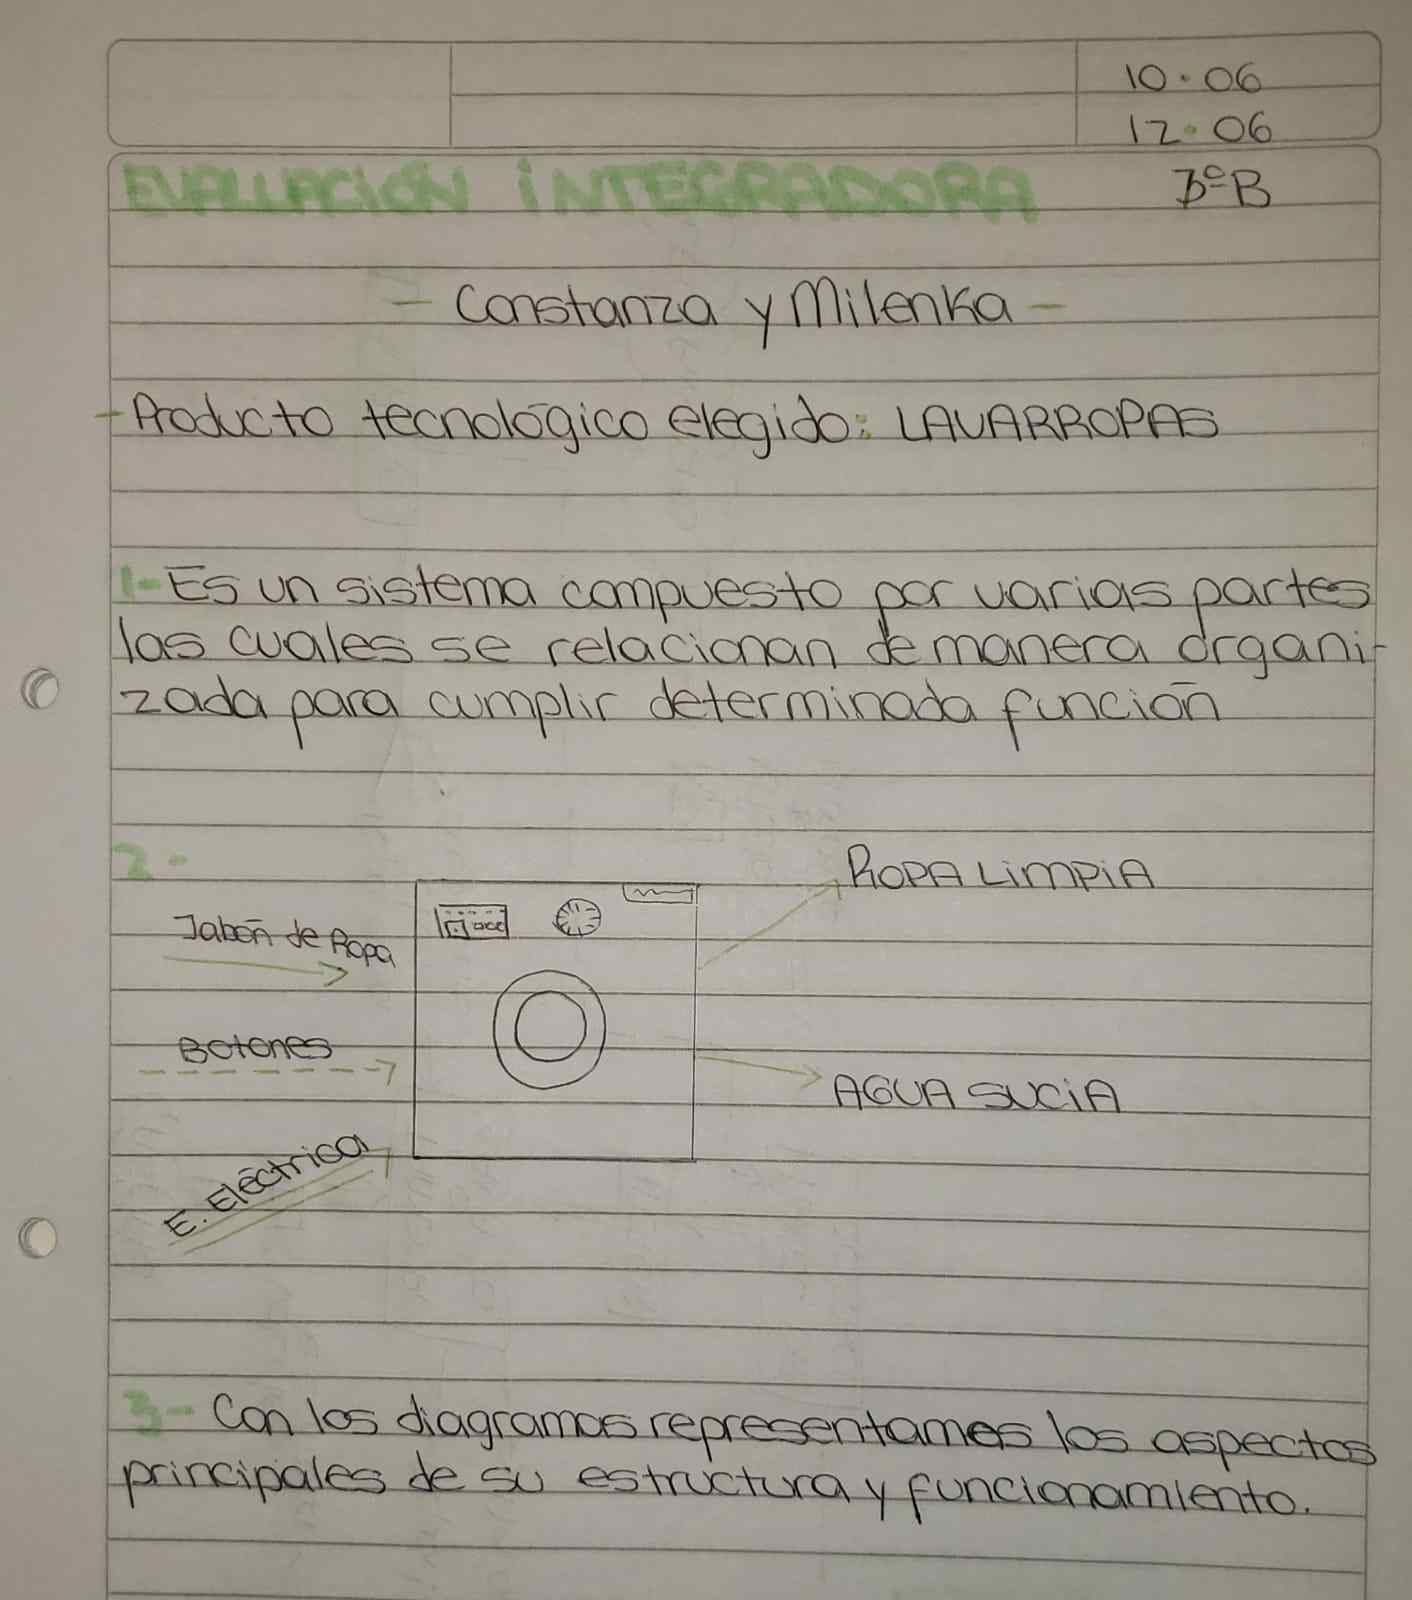 10.06
12.06
EVALUACIÓN INTEGRADORA
3ºB
- Constanza y Milenka -
- Producto tecnológico elegido: LAVARROPAS
1- Es un sistema compuesto por varias partes
las cuales se relacionan de manera organi-
zada para cumplir determinada función
2-
ROPA LIMPIA
Jabón de Ropa
Botones
AGUA SUCIA
E. Eléctrica
3- Con los diagramas representamos los aspectos
principales de su estructura y funcionamiento.